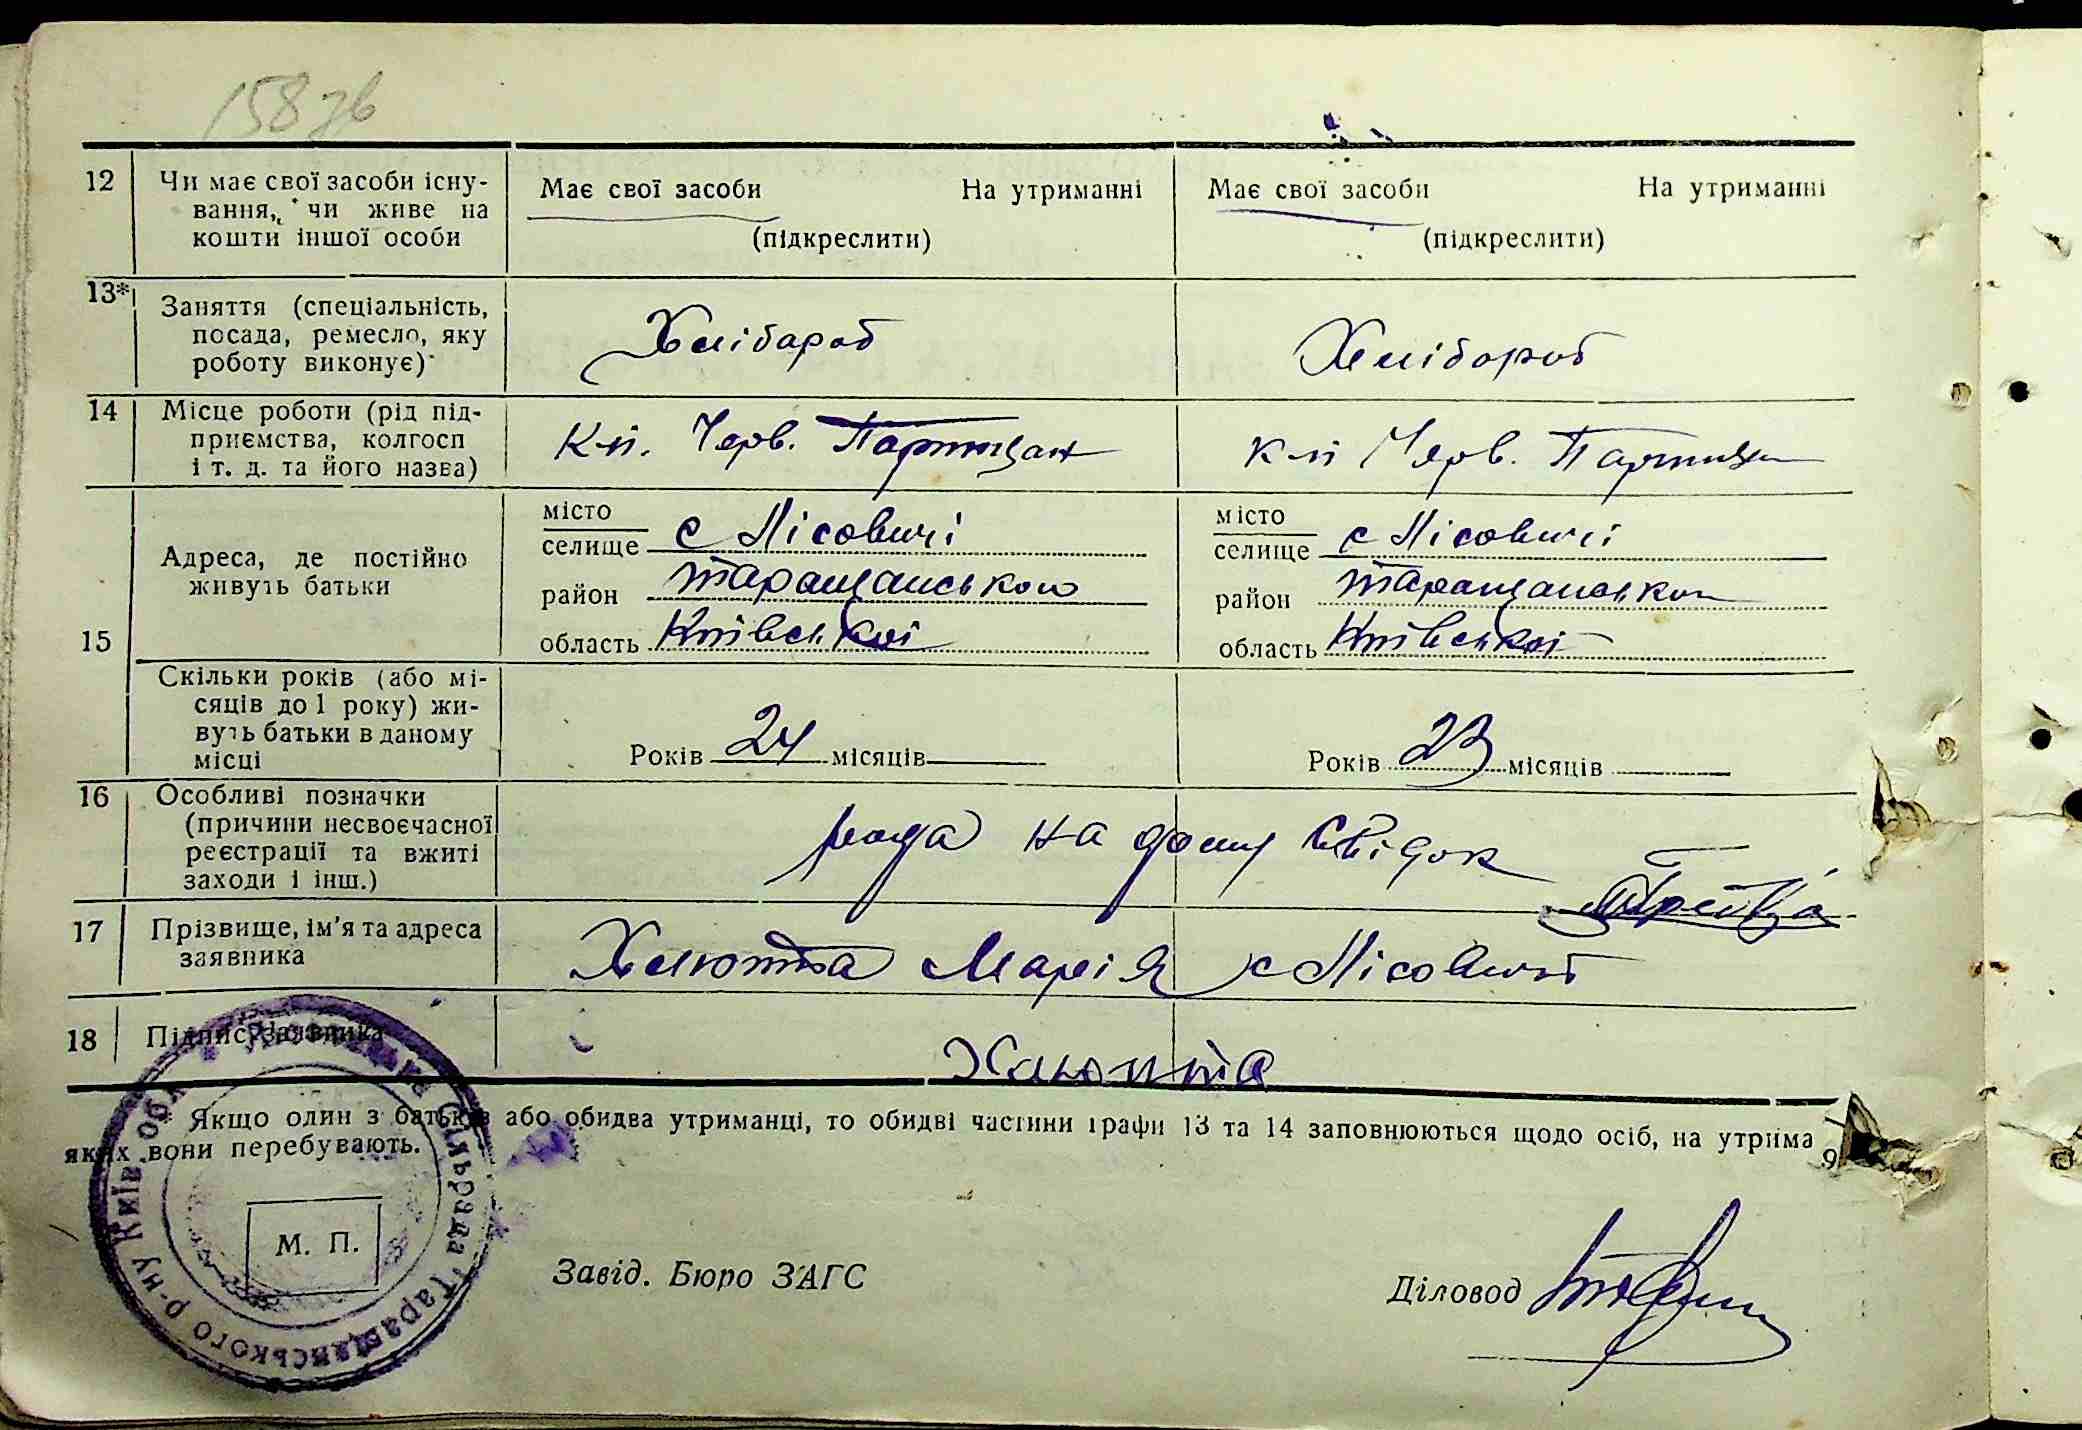 158 зв
12 Чи має свої засоби існу-
вання, чи живе на
кошти іншої особи
Має свої засоби На утриманні
(підкреслити)
Має свої засоби На утриманні
(підкреслити)
13* Заняття (спеціальність,
посада, ремесло, яку
роботу виконує)
Хлібароб
Хлібороб
14 Місце роботи (рід під-
приємства, колгосп
і т. д. та його назва)
Кл. Черв. Партизан
к-п Черв. Партизан
15
Адреса, де постійно
живуть батьки
місто
селище с Лісовичі
район Таращанського
область Київської
місто
селище с Лісовичі
район Таращанського
область Київської
Скільки років (або мі-
сяців до 1 року) жи-
вуть батьки в даному
місці
Років 24 місяців
Років 23 місяців
16 Особливі позначки
(причини несвоєчасної
реєстрації та вжиті
заходи і інш.)
на дому свідок
17 Прізвище, ім'я та адреса
заявника
Хлюпта Марія с Лісовичі
18 Підпис заявника
Хлюпта
Якщо один з батьків або обидва утриманці, то обидві частини графи 13 та 14 заповнюються щодо осіб, на утрима
яких вони перебувають.
сільрада Таращанського р-ну Київ обл
М. П.
Завід. Бюро ЗАГС
Діловод